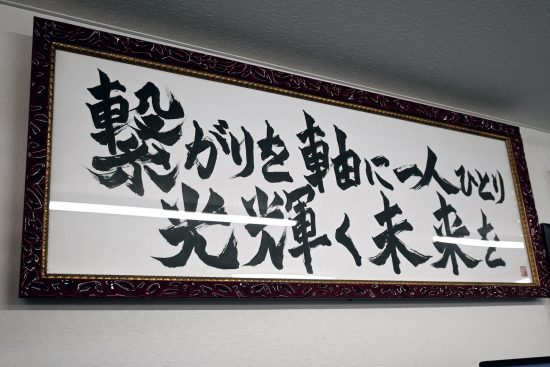 繋がりを軸に一人ひとり
光輝く未来を